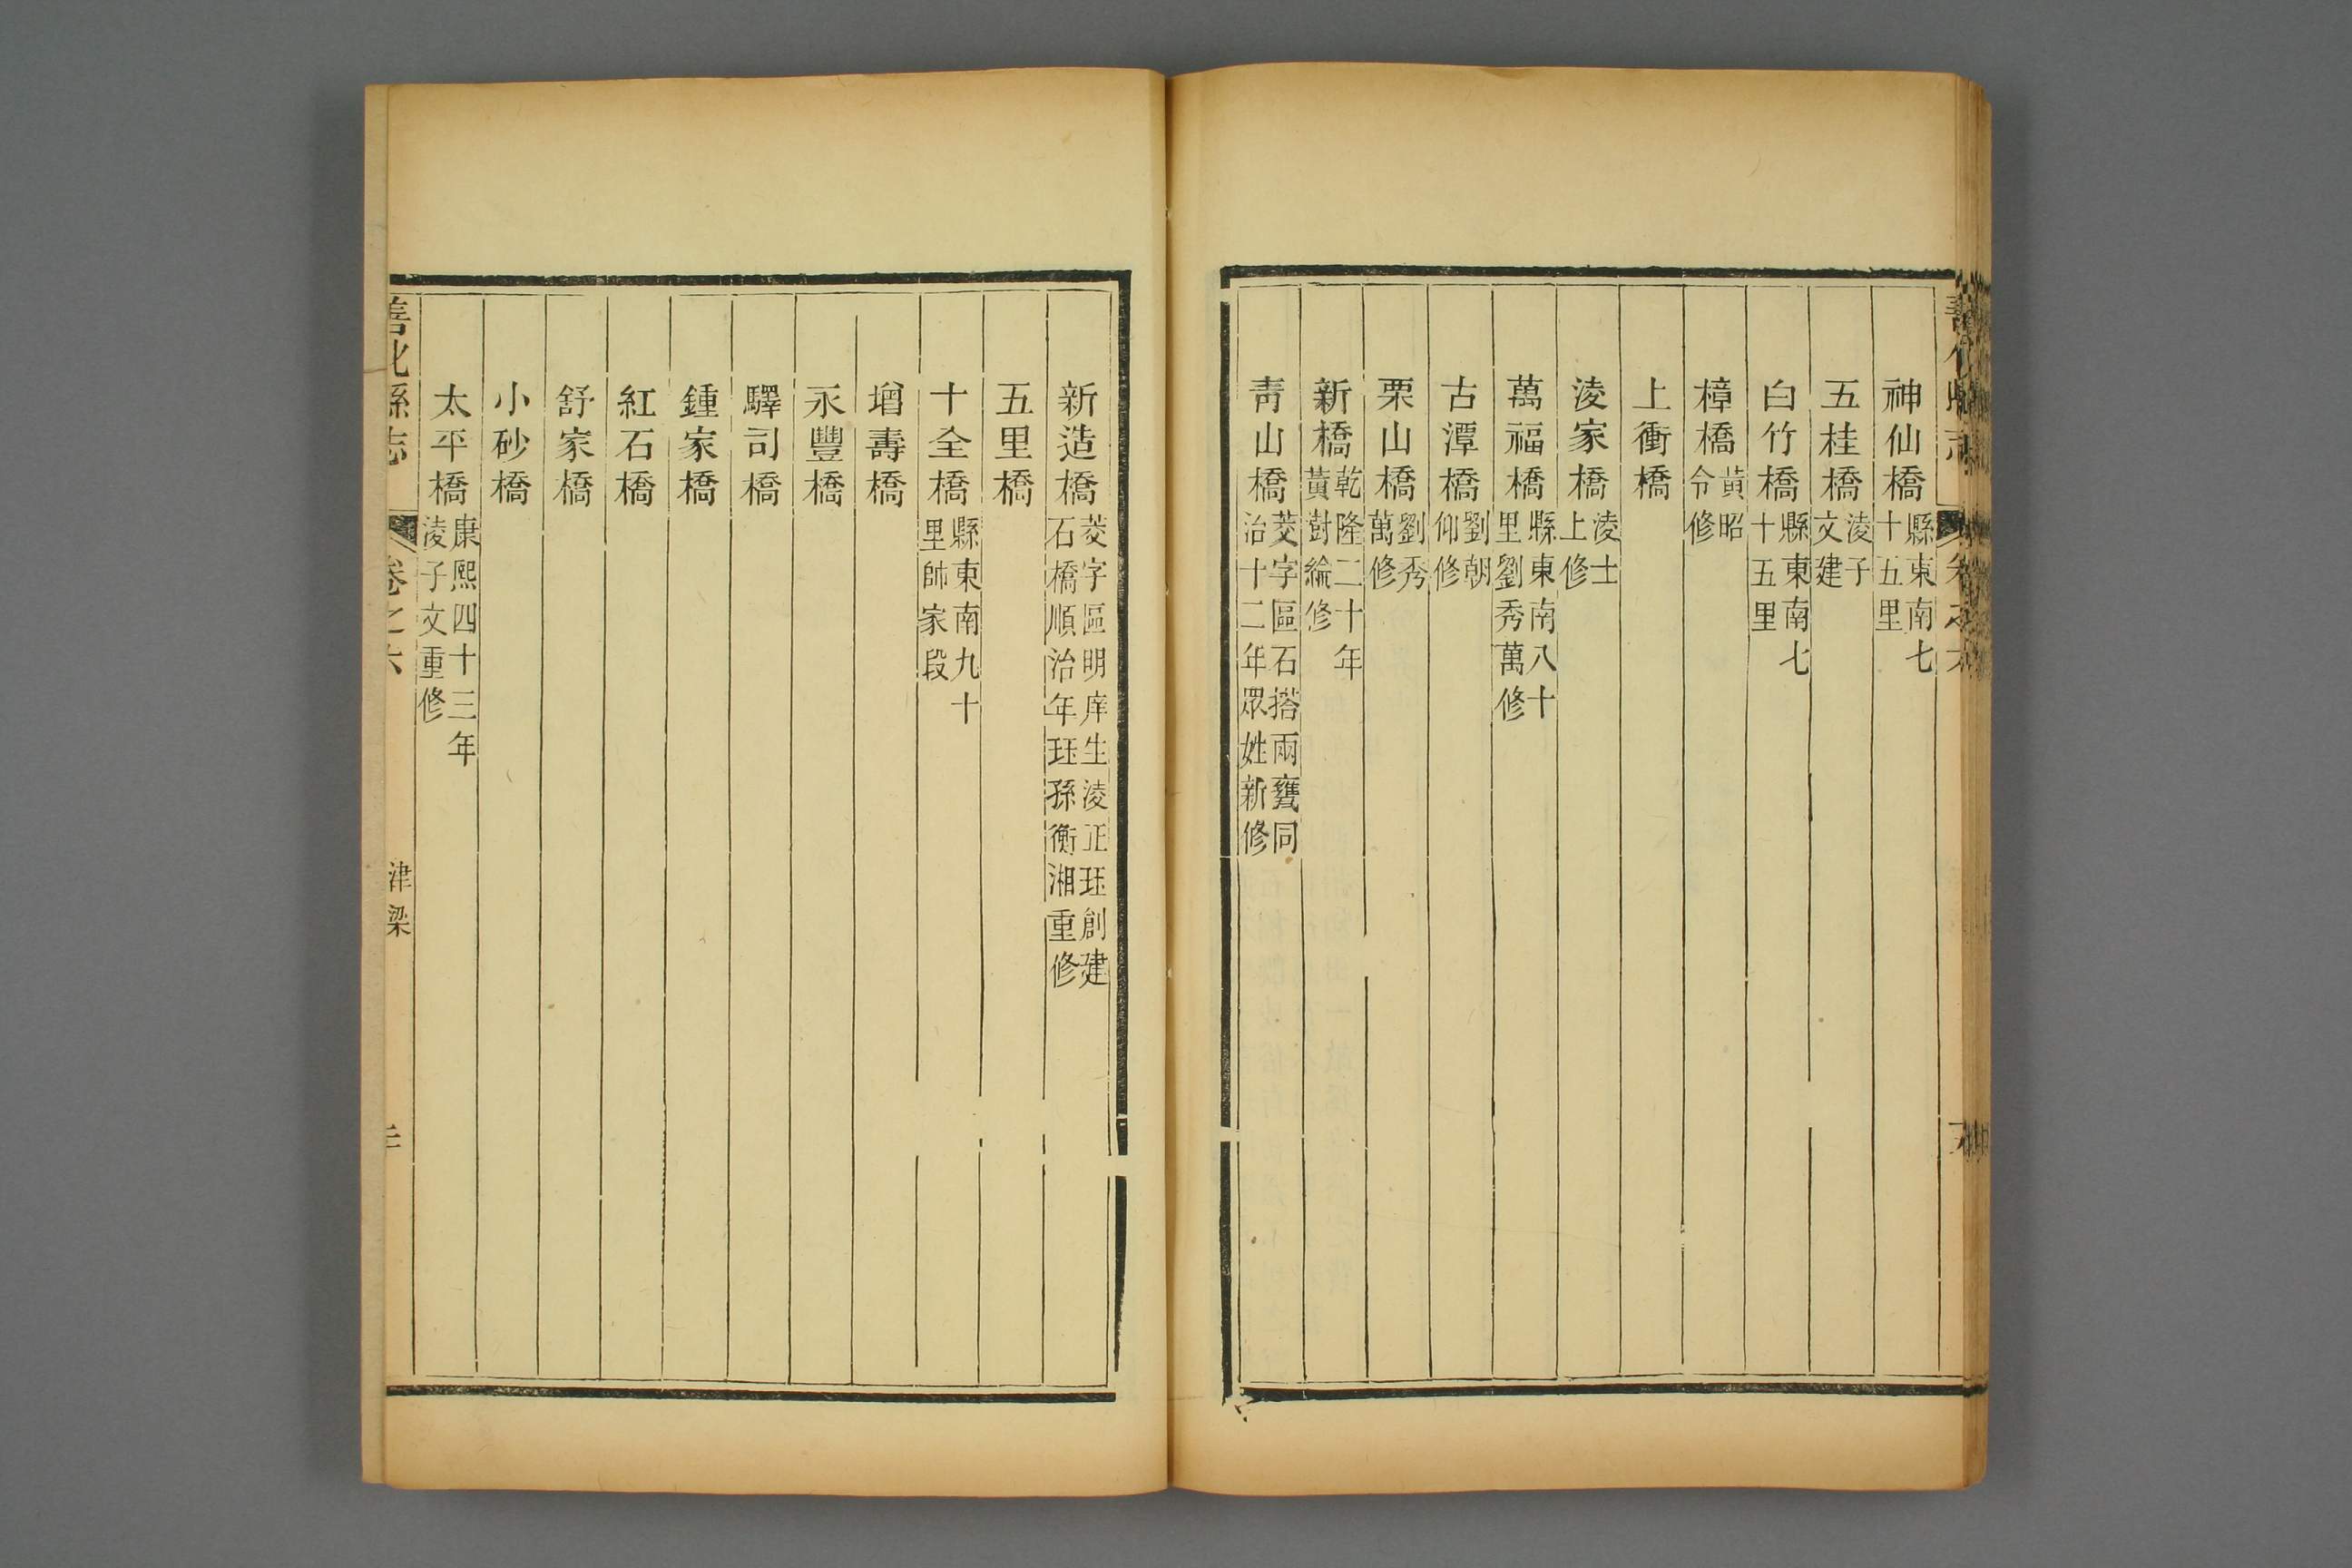 神仙橋縣東南七十五里
五桂橋淩子文建
白竹橋縣東南七十五里
樟橋黃昭令修
上衝橋
淩家橋淩士上修
萬福橋縣東南八十里劉秀萬修
古潭橋劉朝仰修
栗山橋劉秀萬修
新橋乾隆二十年黃尌綸修
靑山橋茭字區石搭兩甕同治十二年眾姓新修
新造橋茭字區明庠生淩正珏創建石橋順治年珏孫衡湘重修
五里橋
十全橋縣東南九十里帥家段
增壽橋
永豐橋
驛司橋
鍾家橋
紅石橋
舒家橋
小砂橋
太平橋康熙四十三年淩子文重修
善化縣志 卷之六 津梁